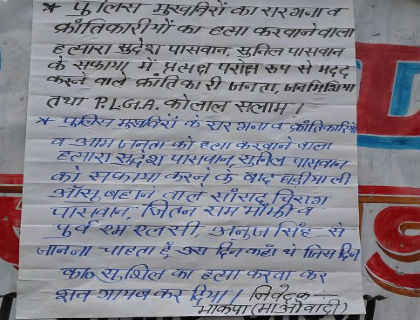 * पुलिस मुखबिरों का सरगना व
क्राँतिकारीयों का हत्या करवाने वाला
हत्यारा सुदेश पासवान, सुनिल पासवान
के सफाया में प्रत्यक्ष परोक्ष रूप से मदद
करने वाले क्राँतिकारी जनता, जनमिलिशिया
तथा P.L.G.A. को लाल सलाम।
* पुलिस मुखबिरों के सरगना व क्राँतिकारियों
व आम जनता को हत्या करवाने वाला
हत्यारा सुदेश पासवान, सुनिल पासवान
को सफाया करने के बाद घड़ियाली
आँसू बहाने वाले साँसद चिराग
पासवान, जितन राम माँझी व
पूर्व एम एलसी अनुज सिंह से
जानना चाहता है उस दिन कहाँ थे जिस दिन
का० सुशिल का हत्या करवा कर
शव गायब कर दिया। निवेदक
भाकपा (माओवादी)